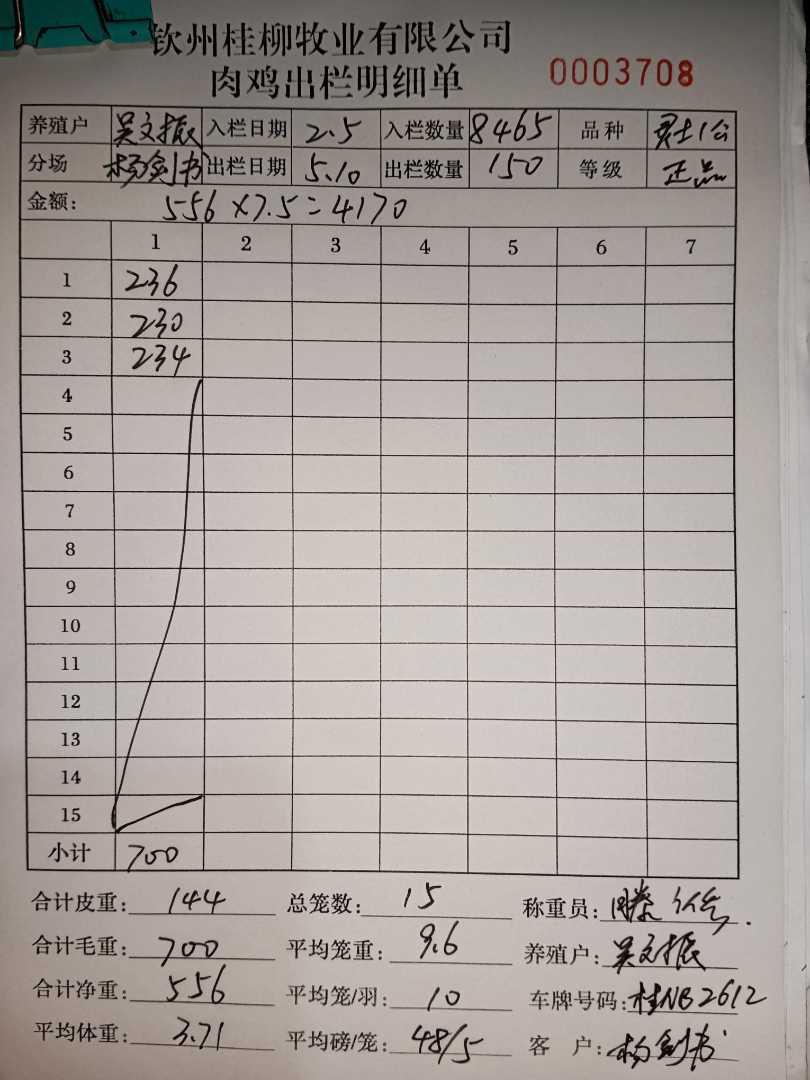 钦州桂柳牧业有限公司
肉鸡出栏明细单 0003708
养殖户 吴文振 入栏日期 2.5 入栏数量 8465 品种 勇士1公
分场 杨剑书 出栏日期 5.10 出栏数量 150 等级 正品
金额: 556×7.5=4170
1 2 3 4 5 6 7
1 236
2 230
3 234
4
5
6
7
8
9
10
11
12
13
14
15
小计 700
合计皮重: 144 总笼数: 15 称重员: 滕
合计毛重: 700 平均笼重: 9.6 养殖户: 吴文振
合计净重: 556 平均笼/羽: 10 车牌号码: 桂NB2612
平均体重: 3.71 平均磅/笼: 48/5 客户: 杨剑书